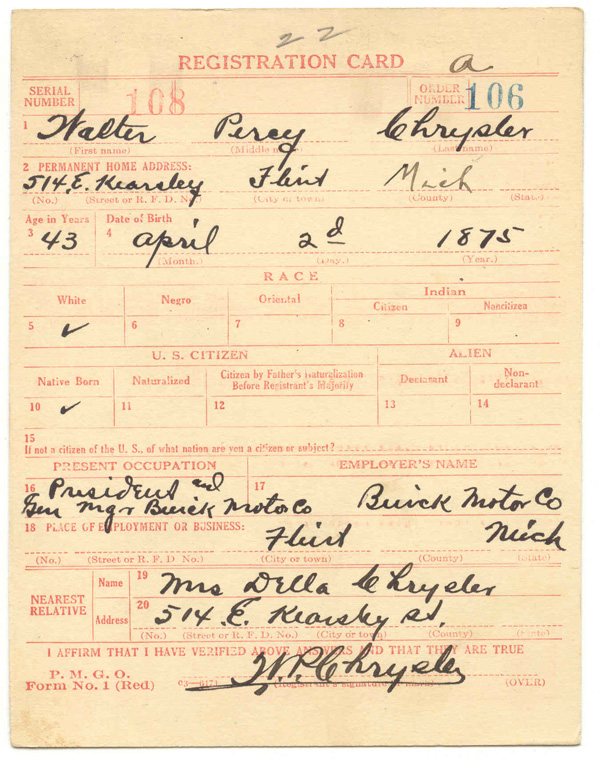 22
REGISTRATION CARD a
SERIAL NUMBER 108 ORDER NUMBER 106
1 Walter Percy Chrysler
(First name) (Middle name) (Last name)
2 PERMANENT HOME ADDRESS:
514. E. Kearsley Flint Mich
(No.) (Street or R. F. D. No.) (City or town) (County) (State)
Age in Years Date of Birth
3 43 4 April 2d 1875
(Month.) (Day.) (Year.)
RACE
White Negro Oriental Indian
Citizen Noncitizen
5 ✓ 6 7 8 9
U. S. CITIZEN ALIEN
Native Born Naturalized Citizen by Father's Naturalization Before Registrant's Majority Declarant Non-declarant
10 ✓ 11 12 13 14
15
If not a citizen of the U. S., of what nation are you a citizen or subject?
PRESENT OCCUPATION EMPLOYER'S NAME
16 President and 17
Gen Mgr Buick Motor Co Buick Motor Co
18 PLACE OF EMPLOYMENT OR BUSINESS:
Flint Mich
(No.) (Street or R. F. D. No.) (City or town) (County) (State)
NEAREST RELATIVE Name 19 Mrs Della Chrysler
Address 20 514 E. Kearsley St.
(No.) (Street or R. F. D. No.) (City or town) (County) (State)
I AFFIRM THAT I HAVE VERIFIED ABOVE ANSWERS AND THAT THEY ARE TRUE
P. M. G. O.
Form No. 1 (Red) W. P. Chrysler
(Registrant's signature or mark) (OVER)